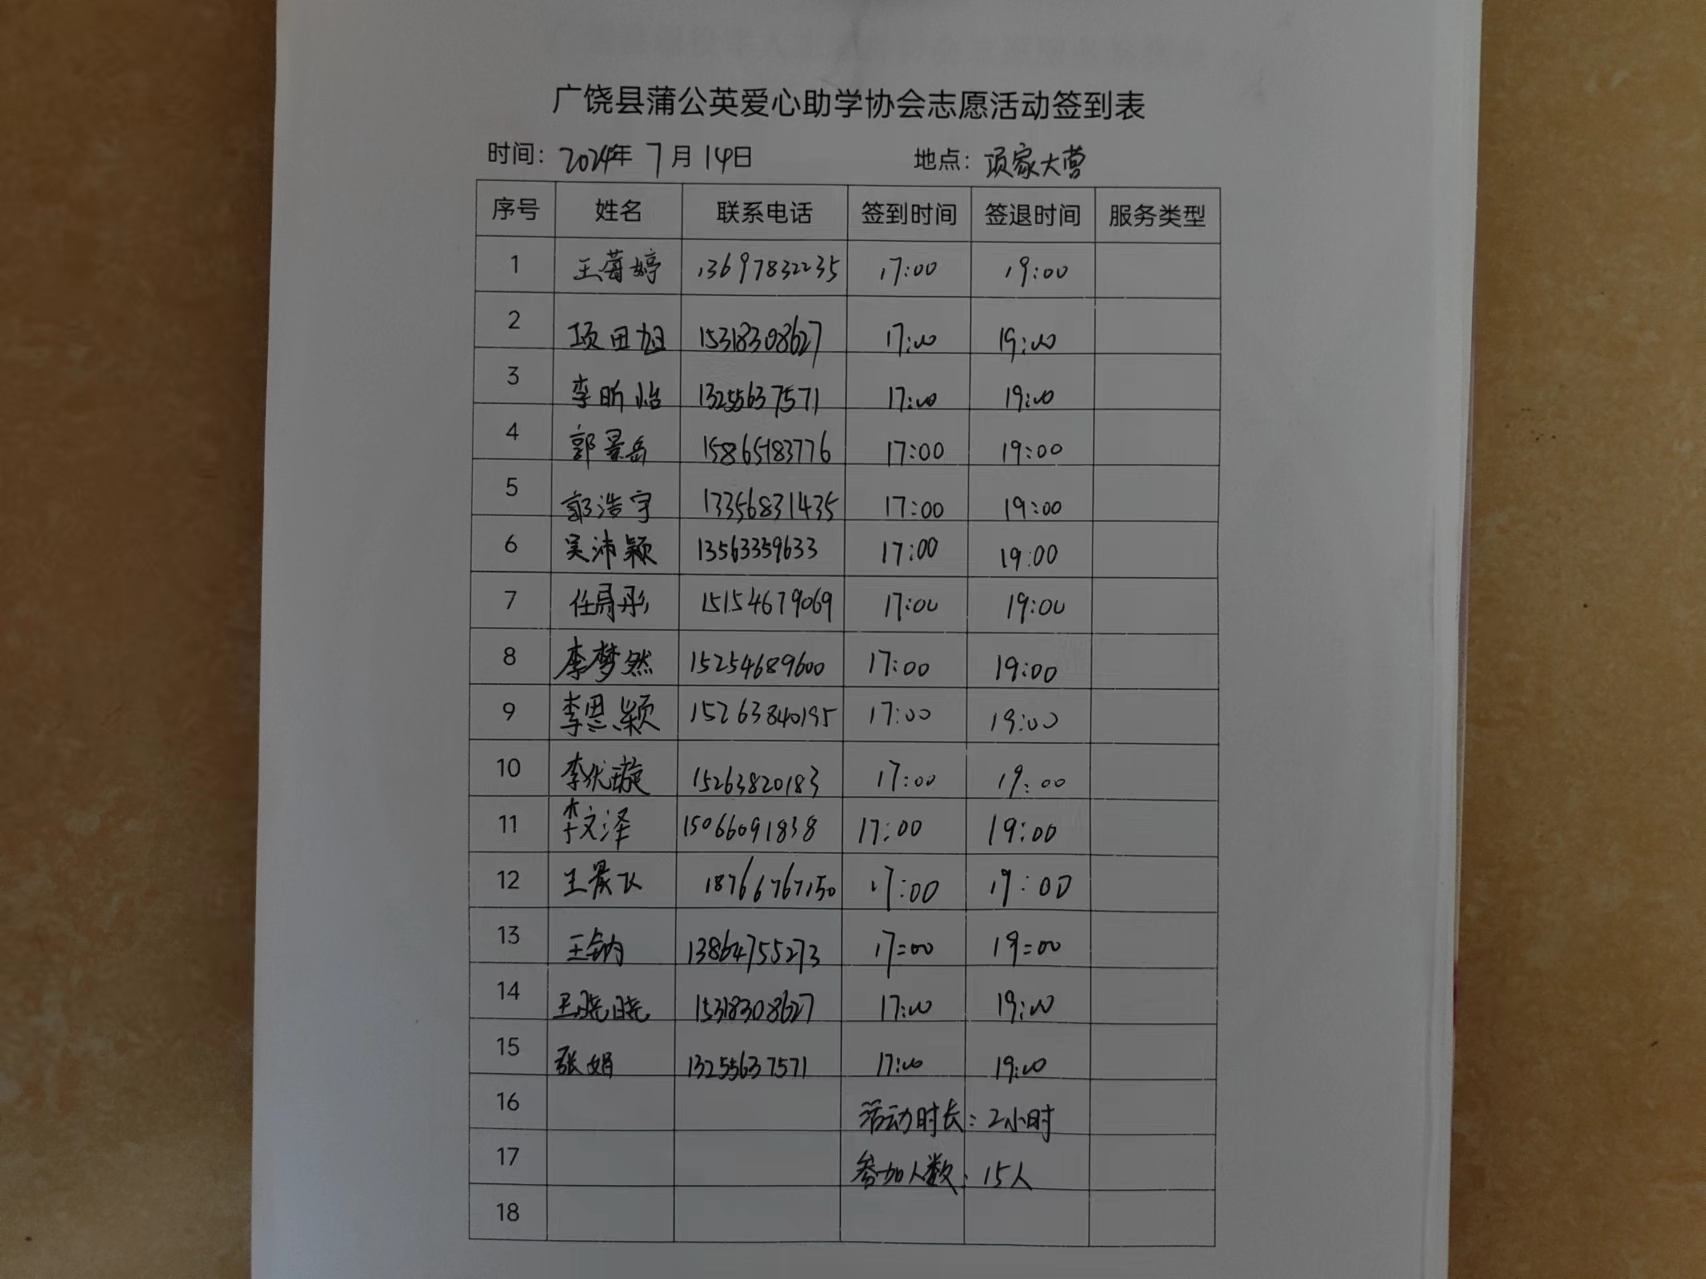 广饶县蒲公英爱心助学协会志愿活动签到表
时间：2024年 7月 14日 地点：项家大营
序号 姓名 联系电话 签到时间 签退时间 服务类型
1 王莓婷 13697832235 17:00 19:00
2 项田旭 15318308627 17:00 19:00
3 李昕怡 13255637571 17:00 19:00
4 郭景岳 15865183776 17:00 19:00
5 郭浩宇 13356831435 17:00 19:00
6 吴沛颖 13563359633 17:00 19:00
7 15154679069 17:00 19:00
8 李梦然 15254689600 17:00 19:00
9 李恩颖 15263840195 17:00 19:00
10 李优璇 15263820183 17:00 19:00
11 李文泽 15066091838 17:00 19:00
12 18766767150 17:00 19:00
13 王钠 13864755273 17:00 19:00
14 王晓晓 15318308627 17:00 19:00
15 张娟 13255637571 17:00 19:00
16 活动时长：2小时
17 参加人数：15人
18